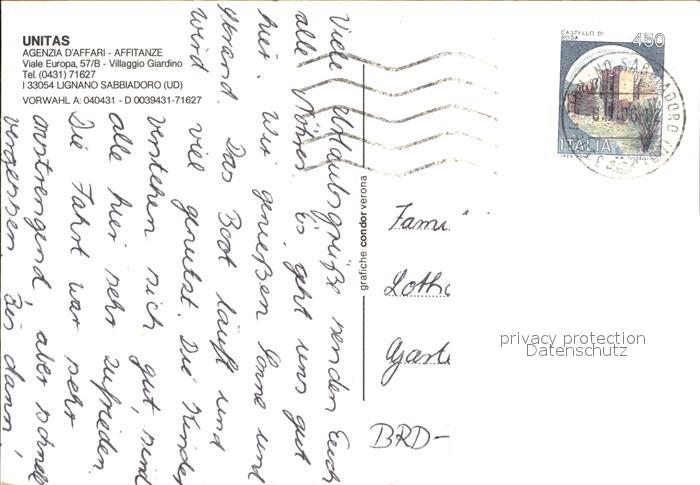 UNITAS
AGENZIA D'AFFARI - AFFITANZE
Viale Europa, 57/B - Villaggio Giardino
Tel. (0431) 71627
I 33054 LIGNANO SABBIADORO (UD)
VORWAHL A: 040431 - D 0039431-71627
Viele Urlaubsgrüße senden Euch
alle Es geht uns gut
hier. Wir genießen Sonne und
Strand. Das Boot läuft und
wird viel genutzt. Die Kinder
verstehen sich gut, sind
alle hier sehr zufrieden.
Die Fahrt war sehr
anstrengend, aber schnell
vergessen. Bis dann!
grafiche condor verona
CASTELLO DI
ROSA
450
ITALIA
Fami
Loth
Garte
BRD-
privacy protection
Datenschutz